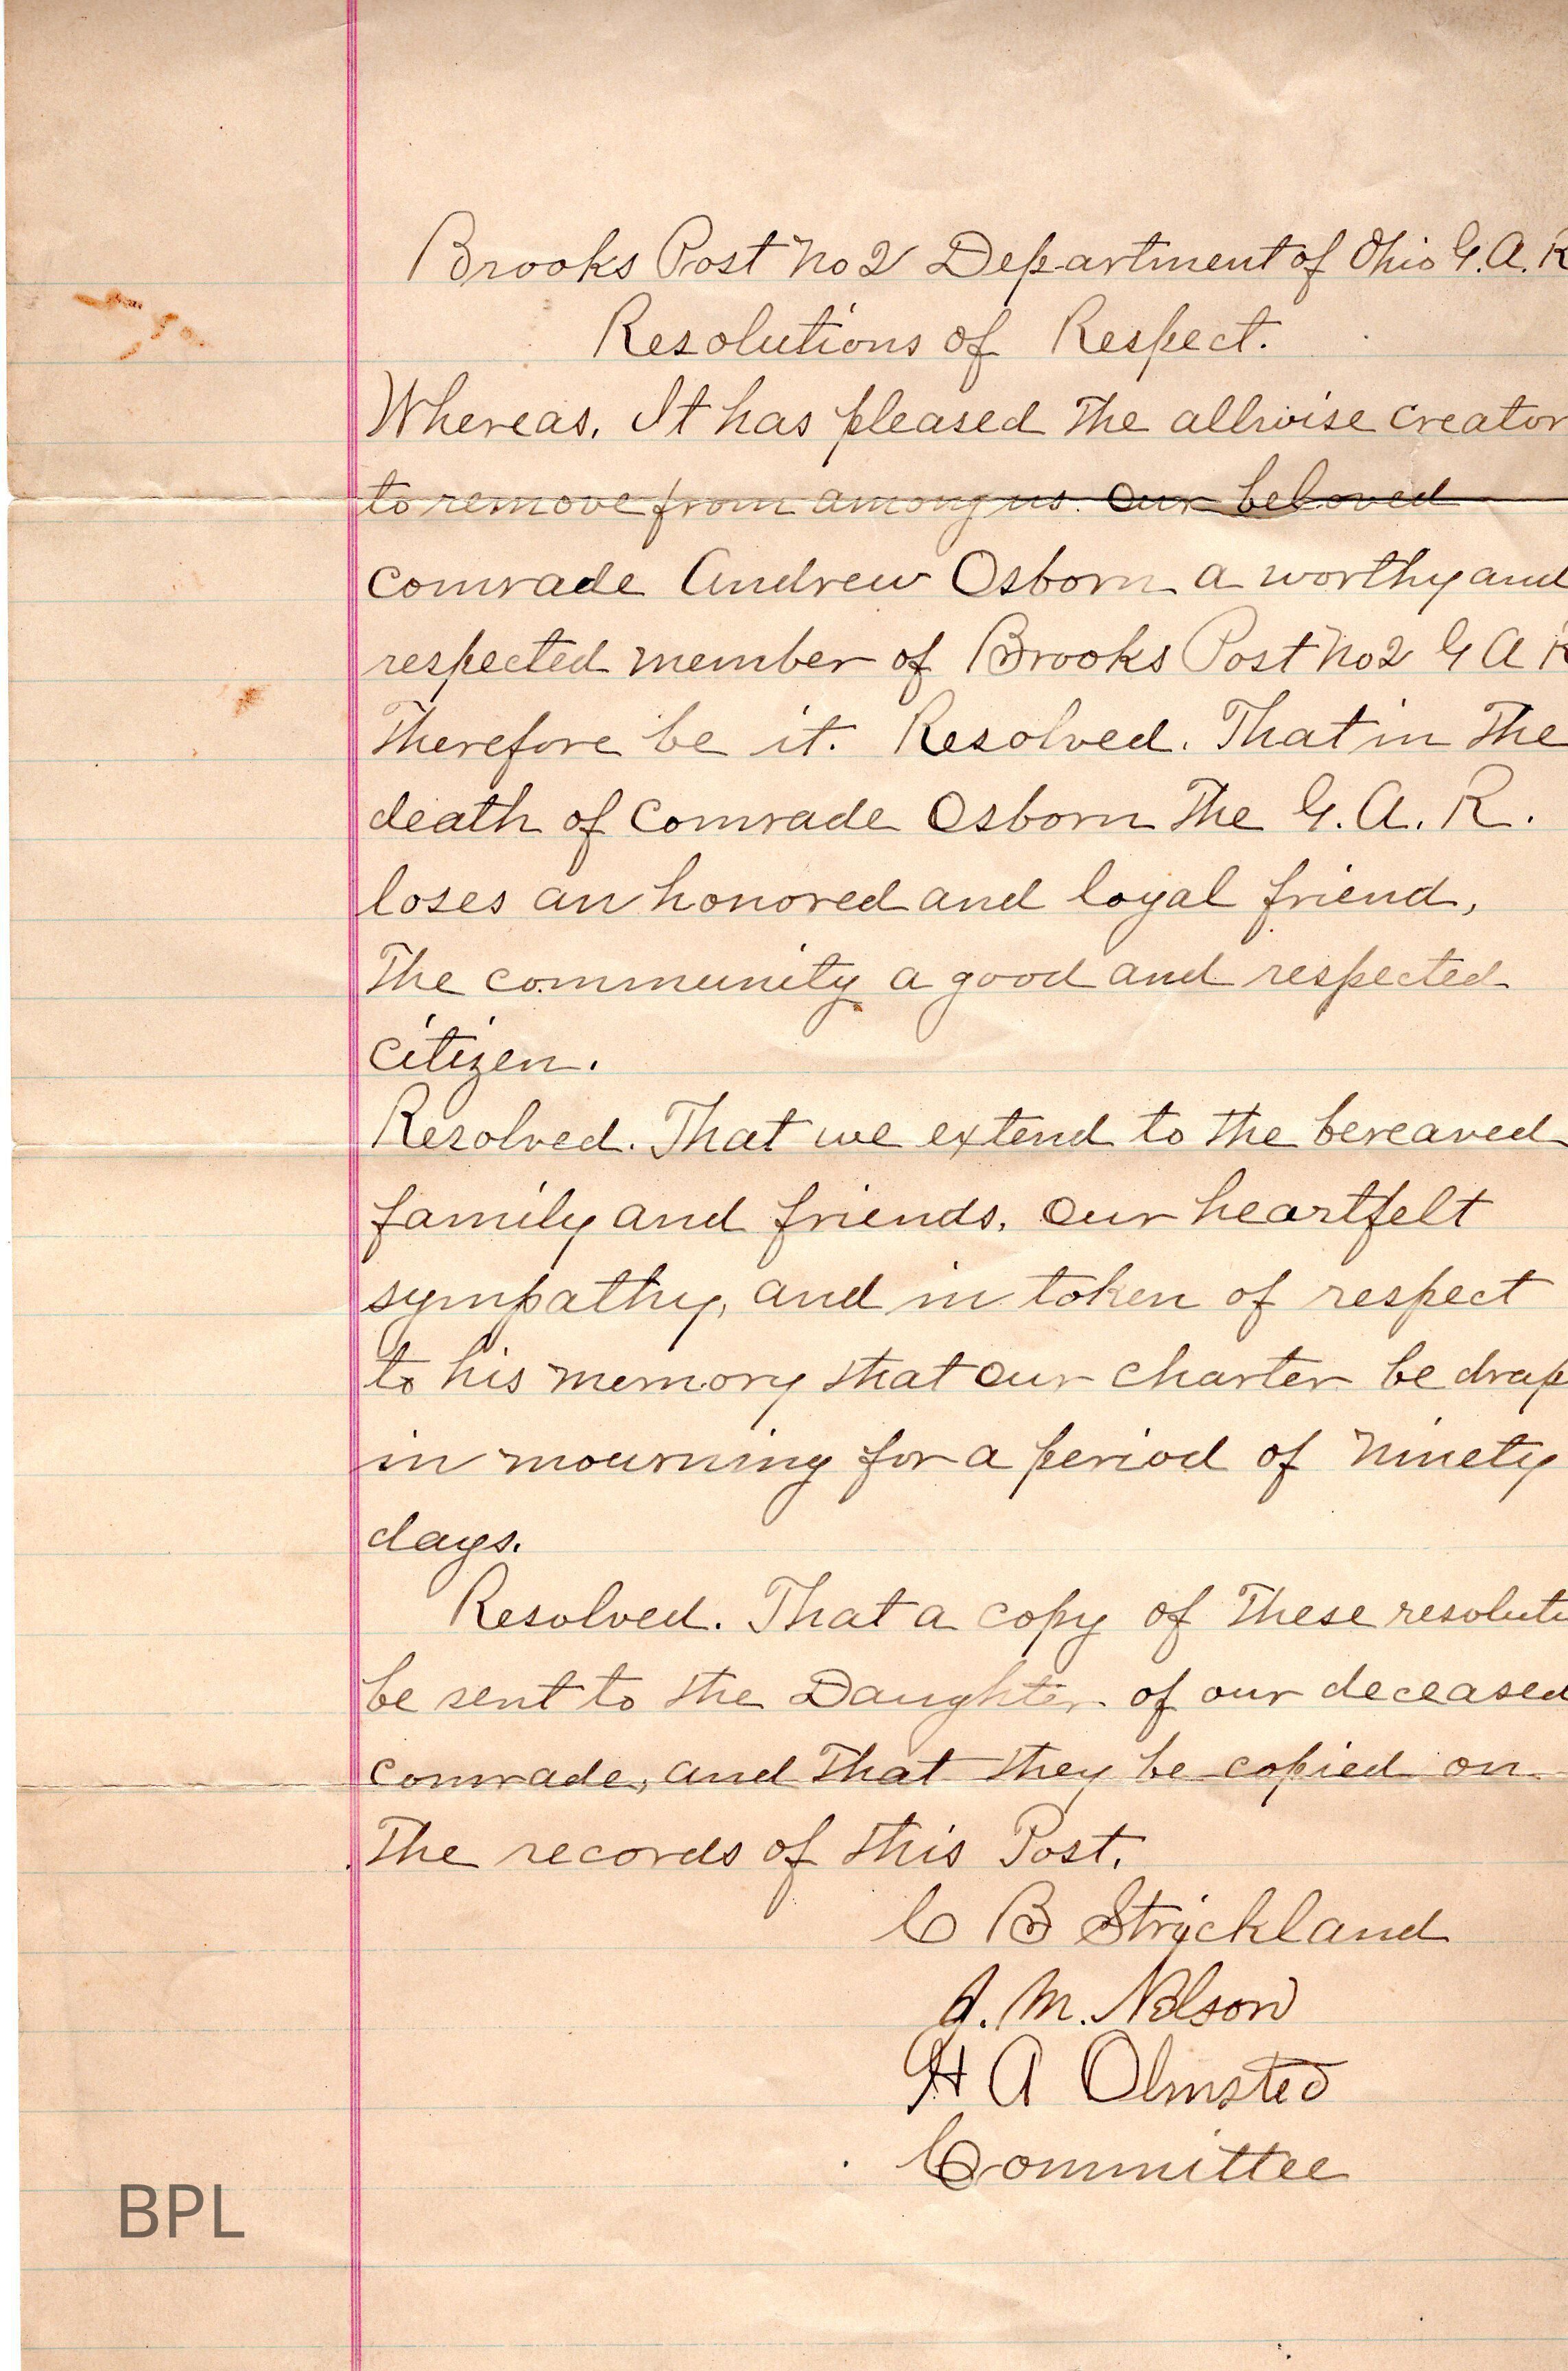 Brooks Post No 2 Department of Ohio G. A. R
Resolutions of Respect.
Whereas, It has pleased The allwise creator
to remove from among us our beloved
comrade Andrew Osborn a worthy and
respected member of Brooks Post No 2 G A R
Therefore be it. Resolved. That in The
death of comrade Osborn The G. A. R.
loses an honored and loyal friend,
The community a good and respected
citizen.
Resolved. That we extend to the bereaved
family and friends, our heartfelt
sympathy, and in token of respect
to his memory that our charter be drap
in mourning for a period of ninety
days.
Resolved. That a copy of These resoluti
be sent to the Daughter of our deceased
comrade, and That they be copied on
The records of this Post.
C B Strickland
J. M. Nelson
H A Olmsted
Committee
BPL